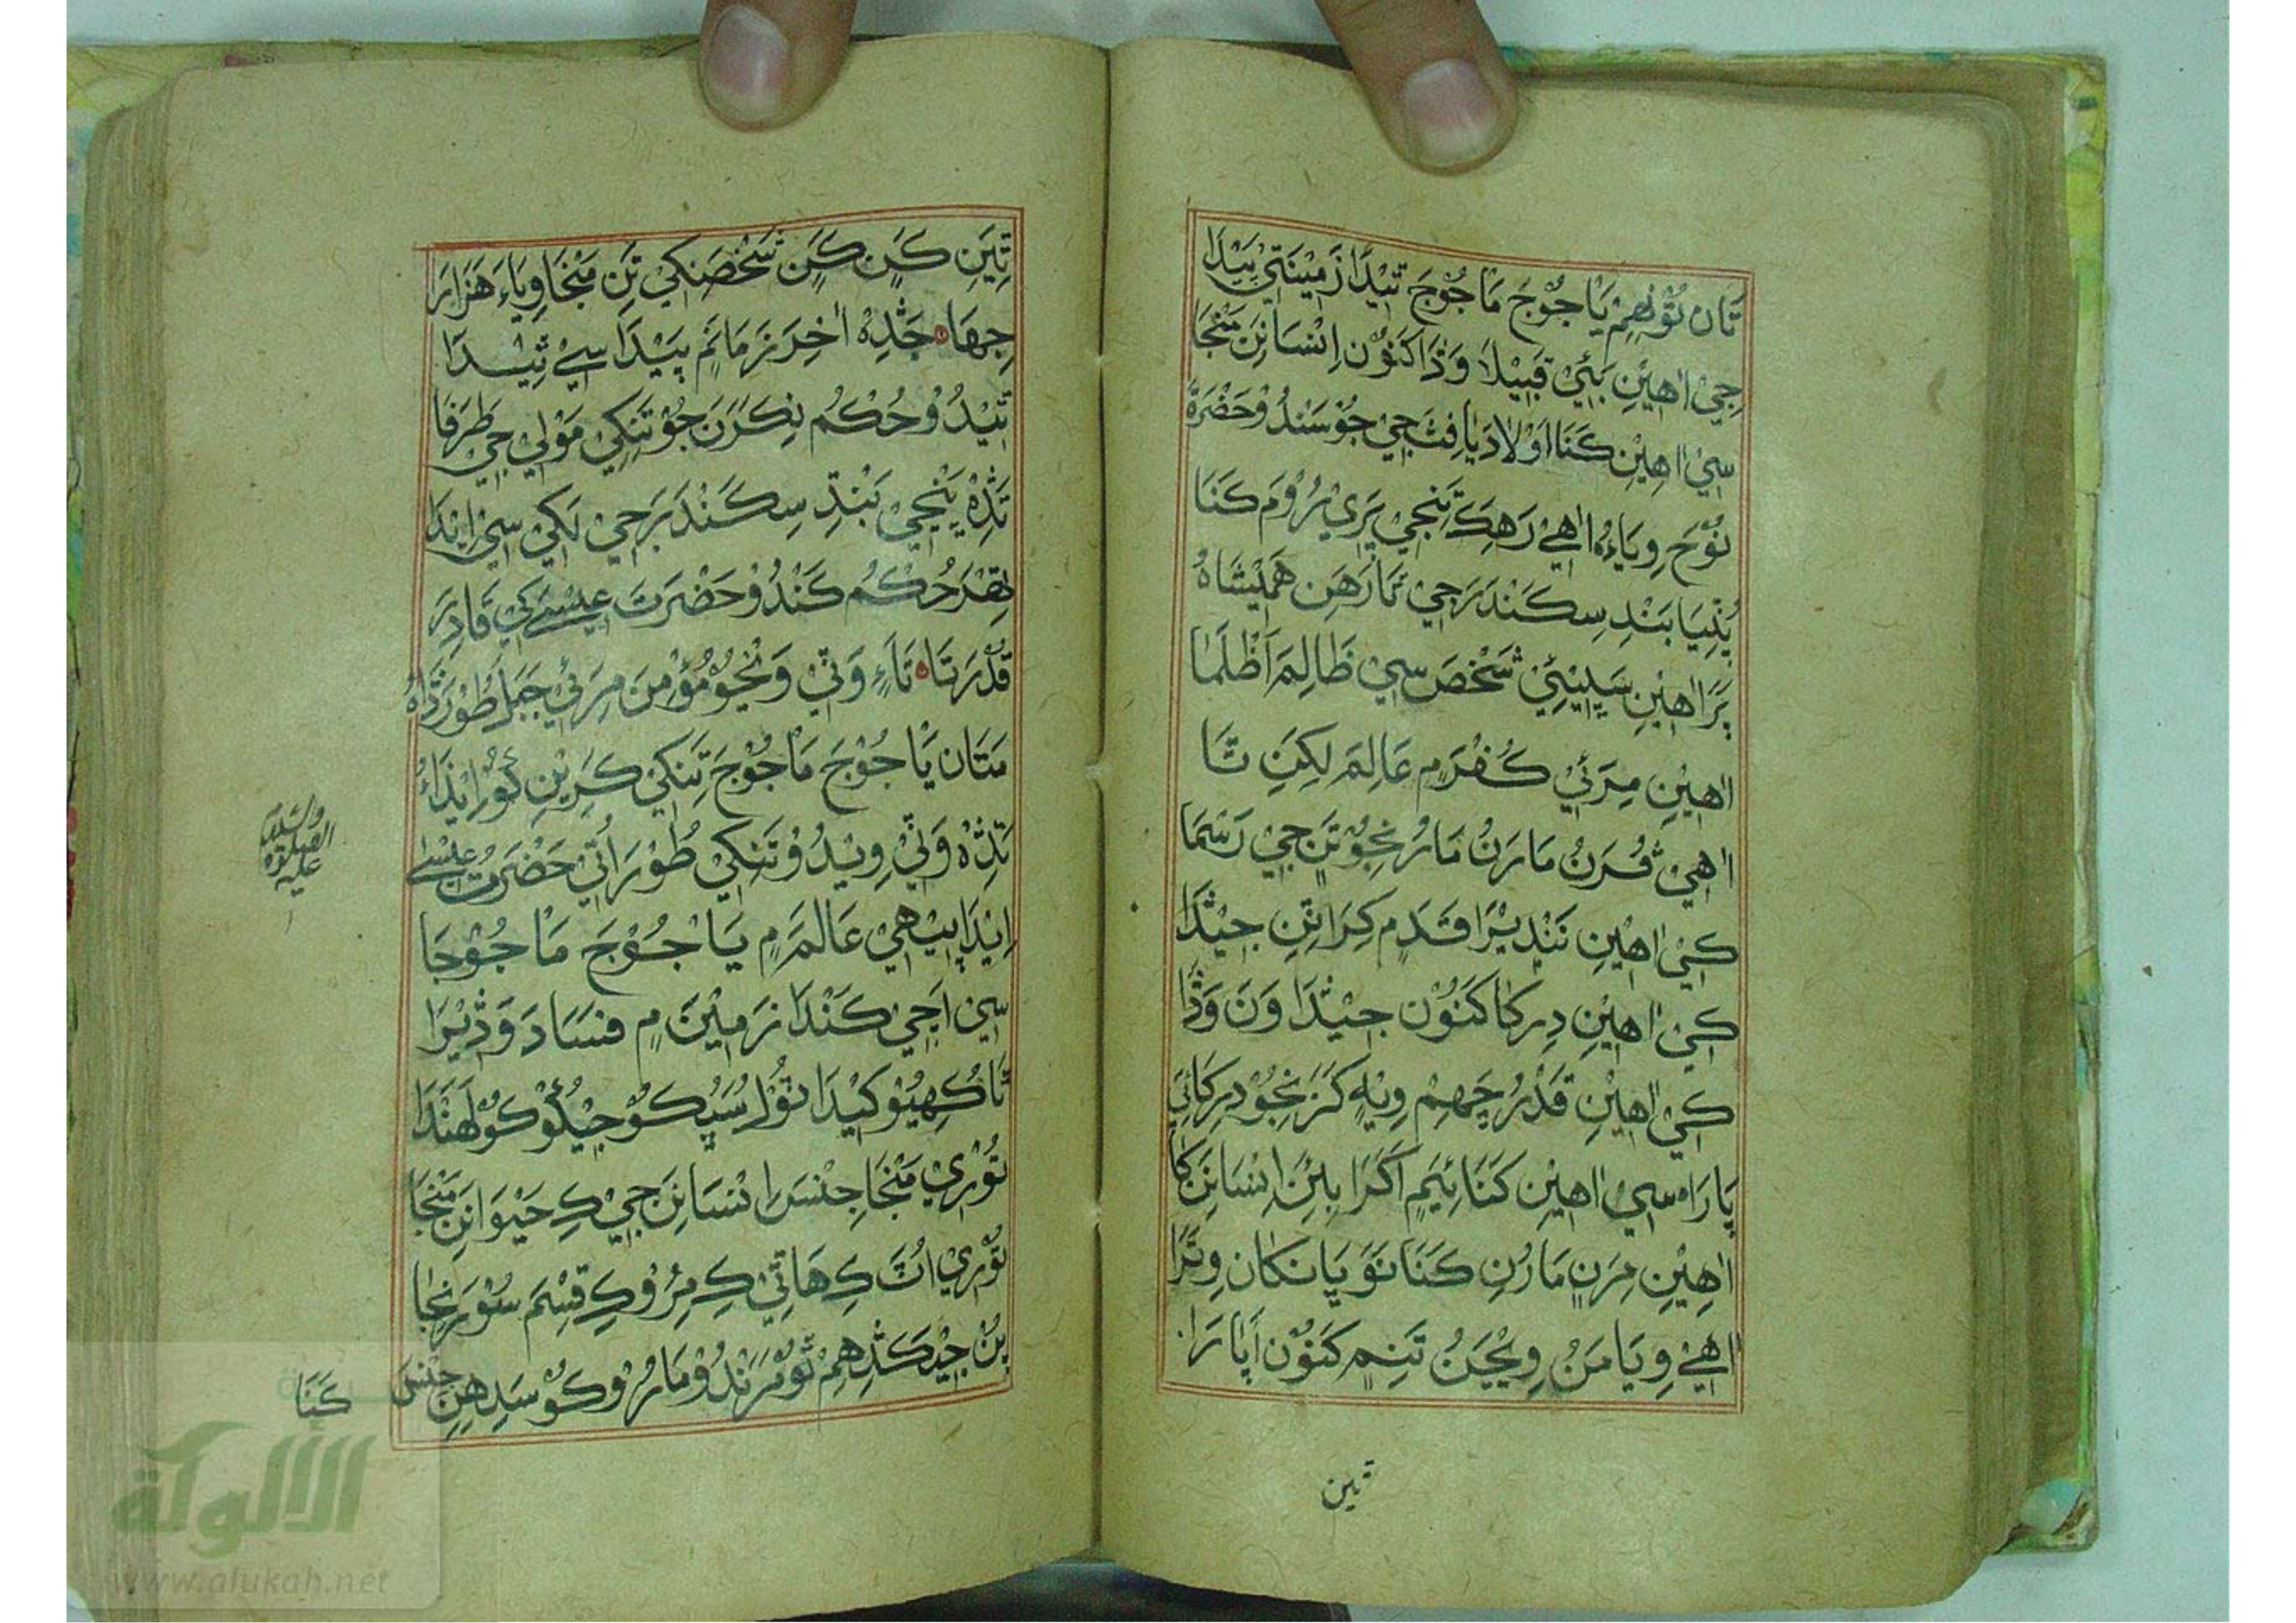 تَان تُوْنهِمْ يَاجُوْجَ مَاجُوْجَ تِيْدَا زَمِيْنَتِيْ پَيْدَا
جِيْ اهِيْنِ ٻَئِيْ قَبِيْلَا وَڏَا کَنُوْن اِنْسَانِنِ مَنْجَا
سِيْ اهِيْنِ کَنَا اَوْلَادَ يَافِثَ جِيْ جُوْ سَنْدُوْ حَضْرَةْ
نُوْحَ وِيَاءُ اهِيْ رَهِکَ تَنِجِيْ پَرِيْ رُوْمَ کَنَا
ٻُنِيَا بَنْدِ سِکَنْدَرَ جِيْ تَمَا رَهَنِ هَمِيْشَاهُ
پَرَ اهِيْنِ سَڀِيْئِيْ شَخْصَ سِيْ ظَالِمَ اَظْلَمَا
اهِيْنِ مِرَئِيْ کُفْرَمِ عَالِمَ لِکِنِ تَا
اهِيْ قُرَنُ مَارَنُ مَارُنجُوْ تَنِ جِيْ رَسْمَا
کِيْ اهِيْنِ نَنْدِيْرَا قَدَمِ کِرَا تِنِ جِيْڎَا
کِيْ اهِيْنِ دِرِکَا کَنُوْن جِيْڎَا وَنَ وَڎَا
کِيْ اهِيْنِ قَدْرُ چَهِمْ وِيْهِ کَزَنجُوْ دِرِکَائِيْ
پَارَاه سِيْ اهِيْنِ کَنَائِيَمِ اَکَرَا بِيْنِ اِنْسَانِنِ کَا
اهِيْنِ مِرَنِ مَارُنِ کَنَا نَوَ پَانَکَان وِتَرَا
اهِيْ وِيَامَنُ وِيْجَنُ تَنِمِ کَنُوْن اَپَارَا
تين
تِيَنِ کَنِ کَنِ شَخْصَنِکِيْ تَنِ مَنْجَا وِيَاءَ هَزَارَا
جِهَا جَڎِهْ اخِرَ زَمَانَمِ پَيْدَا سِيْ تِيْدَا
تِيْدُوْ حُکْمُ نِکَرَنَ جُوْ تَنِکِيْ مَوْلِيْ جِيْ طَرَفَا
تَڎِهْ يَنِجِيْ بَنْدِ سِکَنْدَرَ جِيْ لَکِيْ سِيْ اِيْنْدَا
حُکْمُ کَنْدُوْ حَضْرَتَ عِيْسٰي کِيْ قَادِرَ
قُدْرَتَا تَاءِ وَتِيْ وَنجُوْ مُؤْمِنَ مِرَئِيْ جَبَلَ طُوْرَ
مَتَان يَاجُوْجَ مَاجُوْجَ تِنِکِيْ کَرِيْنِ کُوْ اِيْذَاءُ
تَڎِهْ وَتِيْ وِيْدُوْ تَنِکِيْ طُوْرَ اُتِيْ حَضْرَتُ عِيْسٰي
عليه الصلوة والسلام
اِيْدَا پِيْهِيْ عَالَمَمِ يَاجُوْجَ مَاجُوْجَا
سِيْ اَچِيْ کَنْدَا زَمِيْنَ مِ فَسَادَ وَڎِيْرَا
نَا کُهِيُوْ کِيْدَا تُوْلَ سُڀُکُوْ جِيْکُوْ لَهَنْدَا
تُوْرِيْ مَنْجَا جِنْسَ اِنْسَانِنِ جِيْ کِ حَيْوَانِنِ مَنْجَا
تُوْرِيْ اُٺَ کِ هَاتِيْ کِ مِرُوْ کِ قِسْمَ سُوْرَ نجَا
پُنْ جِيْکَڎِهِمْ تُوْ مَرَنْدُوْ مَارُوْ کُوْ سَنْدِهِنِ جِنْسَ
کَنَا
الألوكة
www.alukah.net